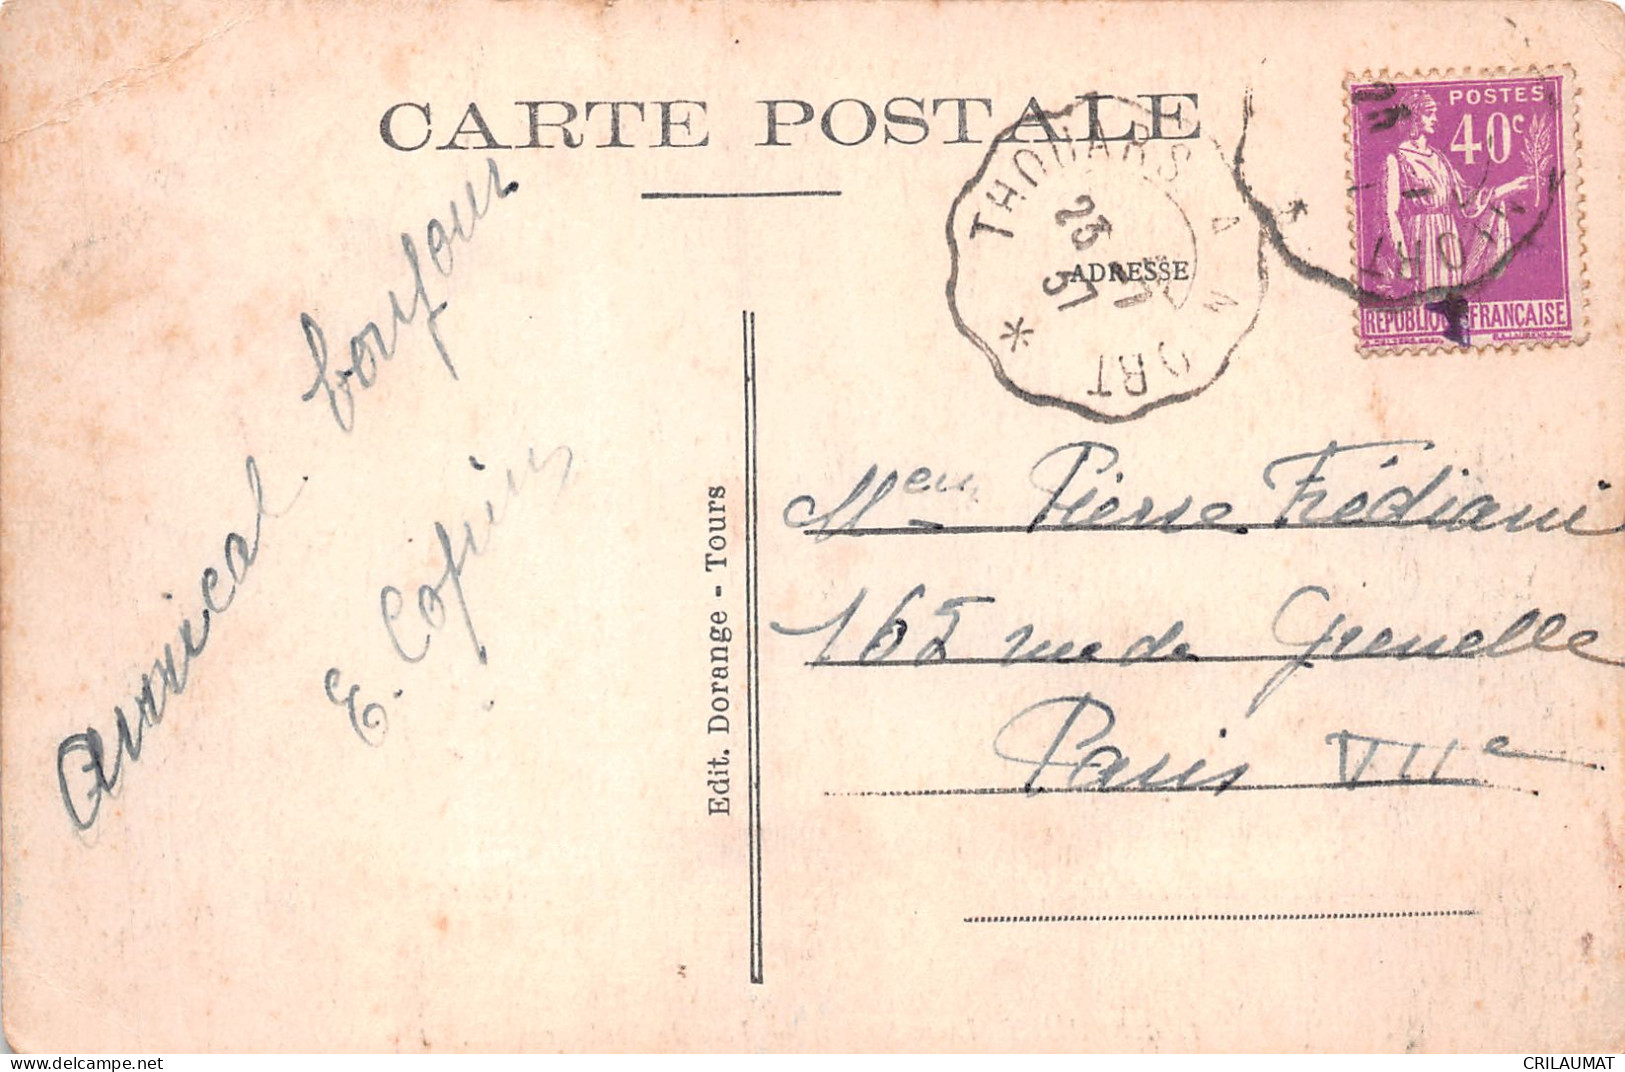 CARTE POSTALE
THOUARS A NIORT *
23
37
ADRESSE
POSTES
40c
REPUBLIQUE FRANÇAISE
amical bonjour
E.
Edit. Dorange - Tours
Pierre Frédiani
165 rue de Grenelle
Paris VIIe
www.delcampe.net
CRILAUMAT